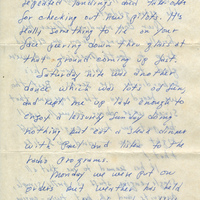 repeated buildings and later after
for checking out new pilots. It's
really something to lie in your
face peering down thru glass at
that ground coming up fast.
Saturday nite was another
dance which was lots of fun,
and kept me up late enough to
enjoy a leisurely Sunday doing
nothing but eat a
with and listen to the
radio programs.
Monday we were put on
orders but weather has held